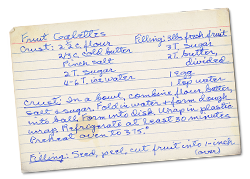 Fruit Galettes
Crust: 2 2 c. flour
Filling: 3lbs fresh fruit
2/3 c. cold butter
3 T. sugar
Pinch salt
2 T. butter,
2 T. sugar
divided
4-6 T. ice water
1 egg
1 tsp water
Crust: In a bowl, combine flour, butter,
salt & sugar. Fold in water & form dough
into ball. Form into disk. Wrap in plastic
wrap. Refrigerate at least 30 minutes
Preheat oven to 375°
Filling: Seed, peel, cut fruit into 1-inch
(over)